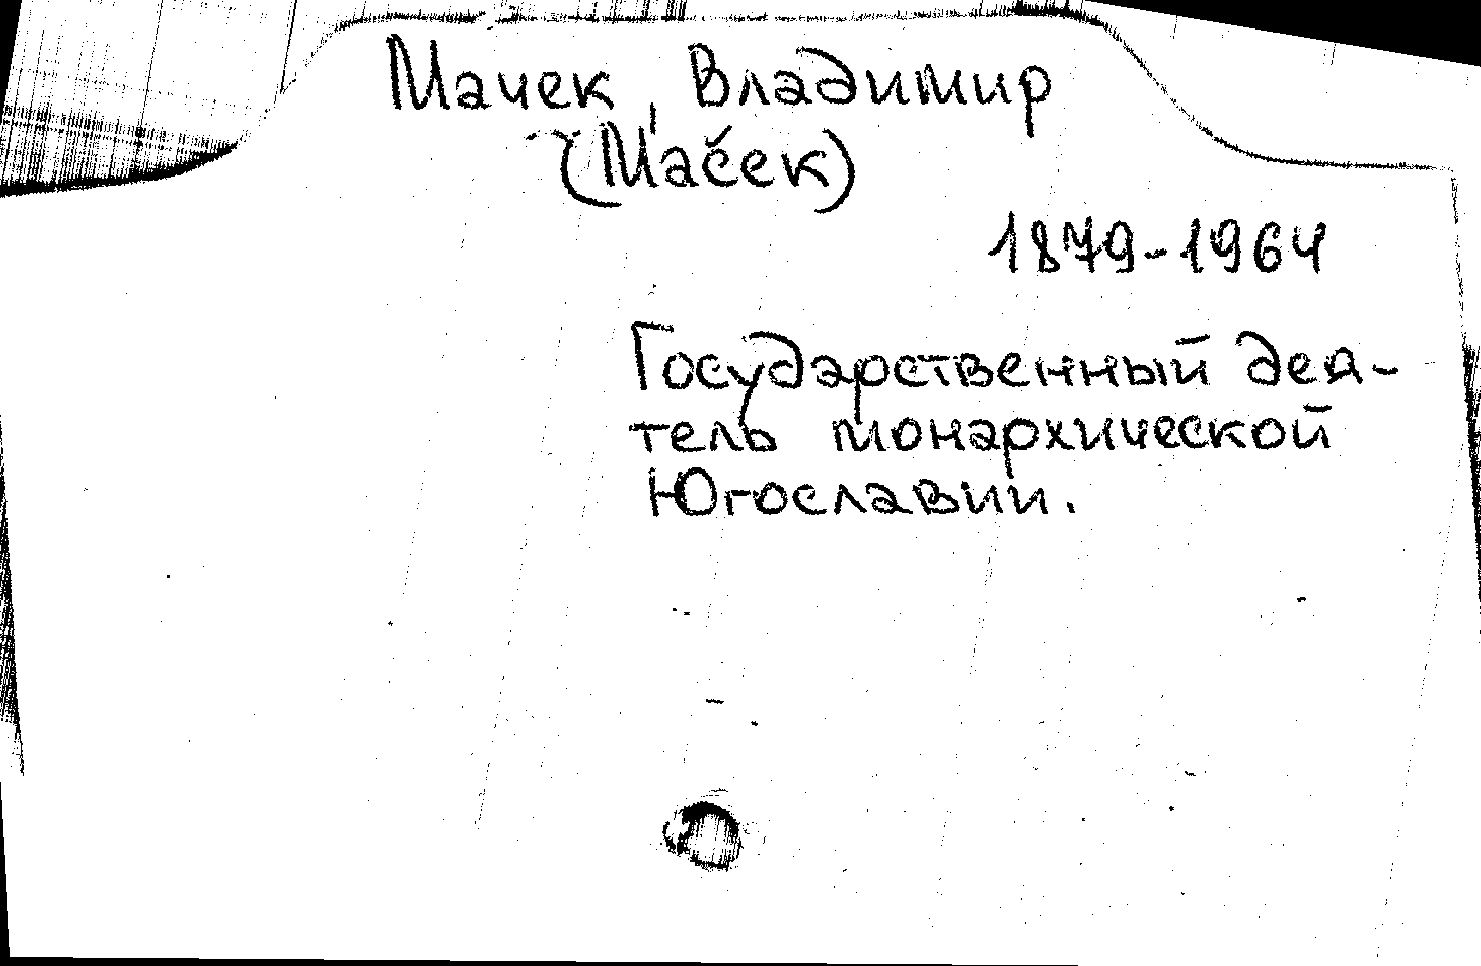 Мачек, Владимир
(Maček)
1879-1964
Государственный дея-
тель монархической
Югославии.